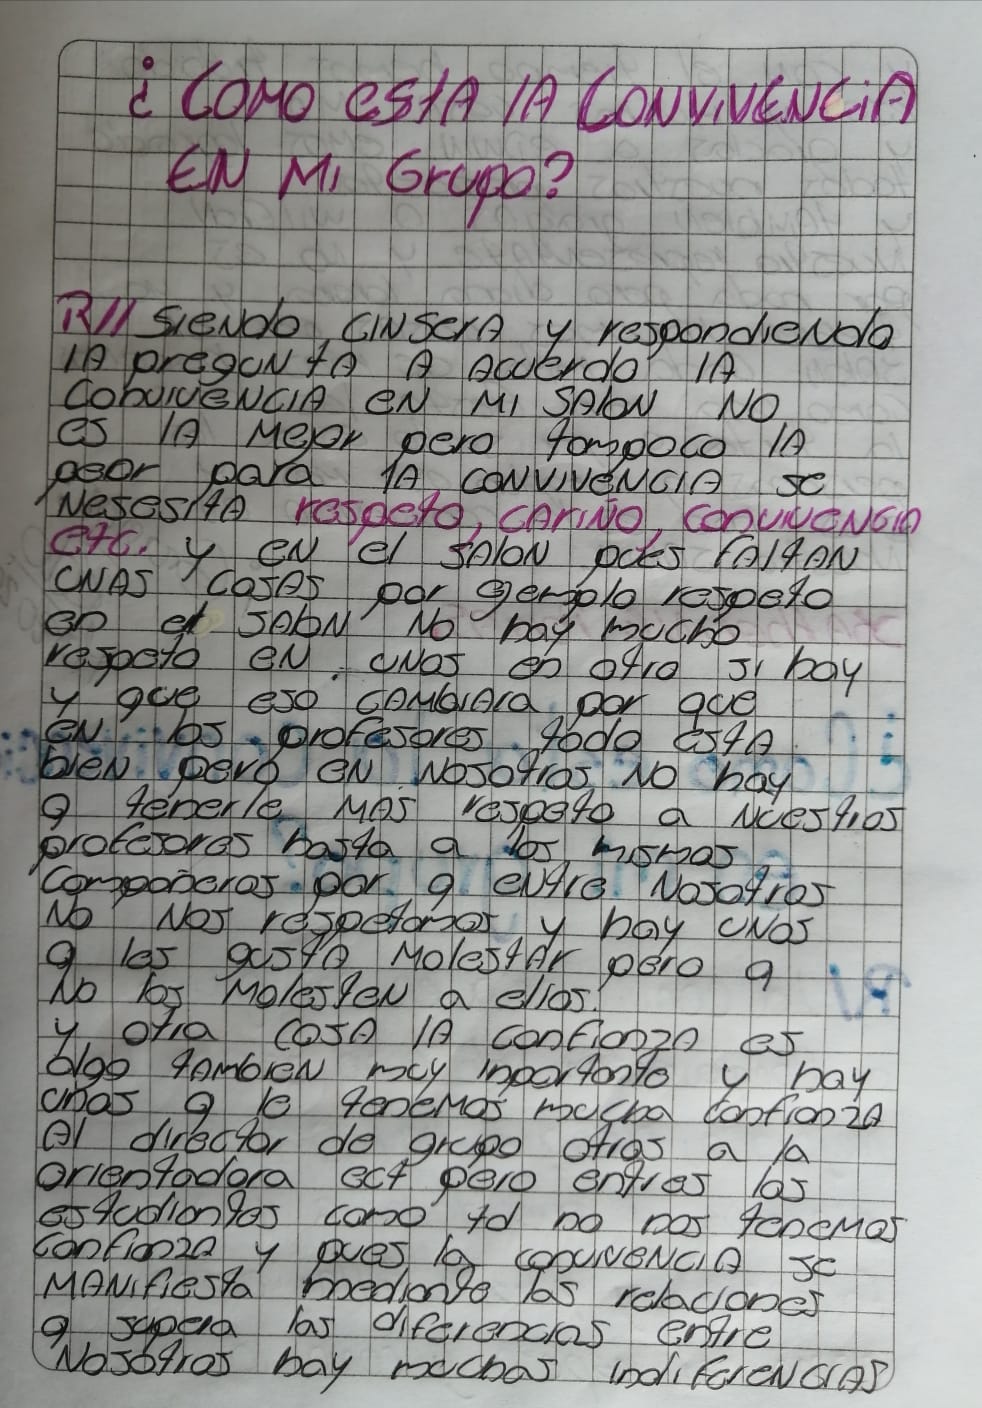 ¿COMO ESTA LA CONVIVENCIA
EN MI Grupo?
R// SIENDO CINSERA y respondiendo
LA pregunta A Acuerdo LA
CONVIVENCIA EN MI SALON NO
es LA Mejor pero tampoco LA
peor para LA CONVIVENCIA se
Nesesita respeto, CARIÑO, CONVIVENCIA
etc. y EN el SALON pues FALTAN
UNAS COSAS por ejemplo respeto
en el SALON No hay mucho
respeto EN UNOS en otro si hay
y que eso CAMBIARA por que
EN los profesores todo ESTA
bien pero EN NOSOTROS NO hay
q tenerle MAS respeto a Nuestros
profesores hasta a los mismos
compañeros por q entre Nosotros
No Nos respetamos y hay UNOS
q les gusta MOLESTAR pero q
No los MOLESTEN a ellos.
y otra COSA LA confianza es
algo TAMBIEN muy inportante y hay
unas q le tenemos mucha confianza
Al director de grupo otras a la
orientadora ect pero entres los
estudiantes como td no nos tenemos
confianza y pues la CONVIVENCIA se
MANIFIESTA mediante las relaciones
q supera las diferencias entre
Nosotros hay muchas indiferencias